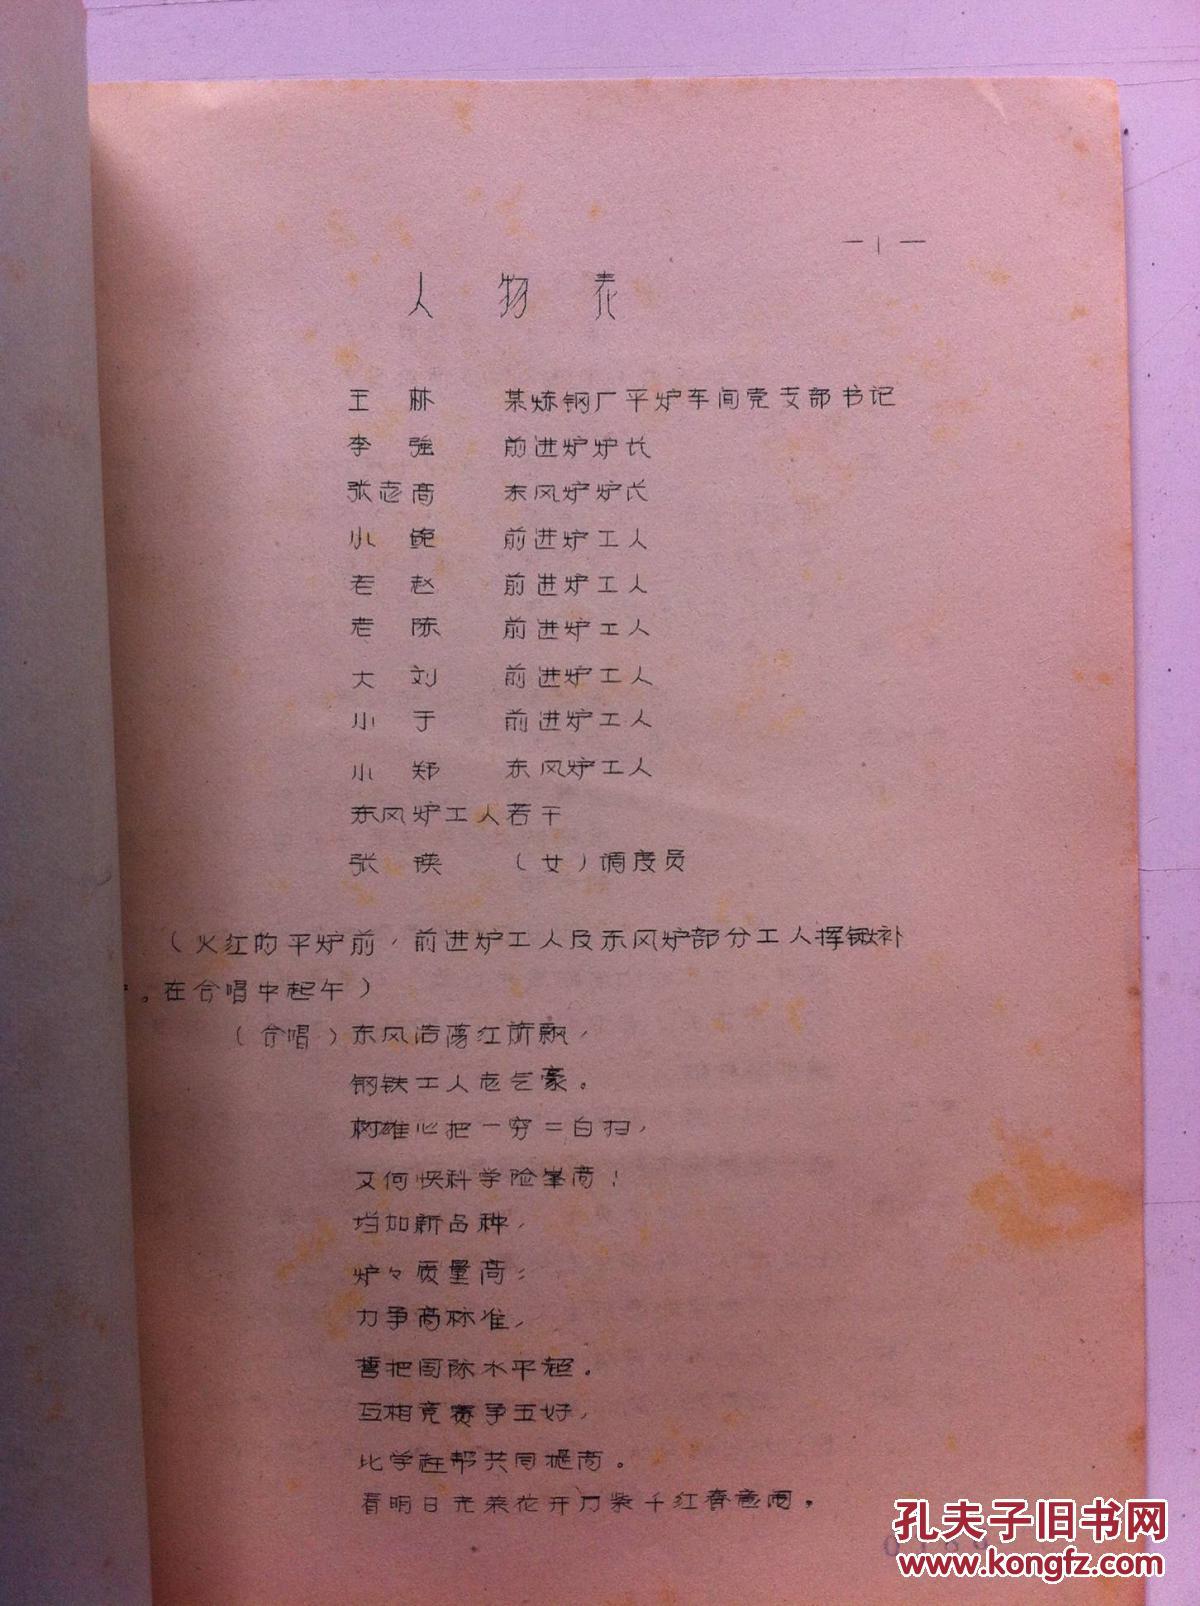 —1—
人物表
王林 某炼钢厂平炉车间党支部书记
李强 前进炉炉长
张志高 东风炉炉长
小鲍 前进炉工人
老赵 前进炉工人
老陈 前进炉工人
大刘 前进炉工人
小于 前进炉工人
小郑 东风炉工人
东风炉工人若干
张瑛 （女）调度员
（火红的平炉前，前进炉工人及东风炉部分工人挥锹补
。在合唱中起午）
（合唱）东风浩荡红旂飘，
钢铁工人志气豪。
树雄心把一穷二白扫，
又何惧科学险峯高！
增加新品种，
炉々质量高；
力争高标准，
誓把国际水平超。
互相竞赛争五好，
比学赶帮共同提高。
看明日光荣花开万紫千红春意闹。
孔夫子旧书网
www.kongfz.com